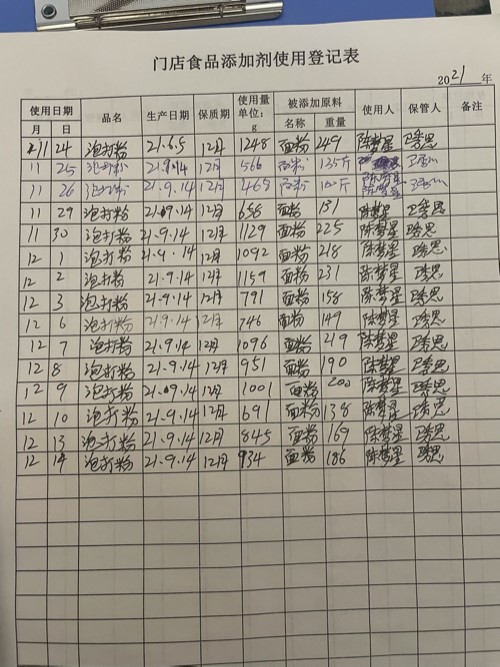 门店食品添加剂使用登记表
2021 年
使用日期 品名 生产日期 保质期 使用量单位:g 被添加原料 使用人 保管人 备注
月 日 名称 重量
11 24 泡打粉 21.6.5 12月 1248 面粉 249 陈梦星
11 25 泡打粉 21.9.14 12月 566 135斤
11 26 泡打粉 21.9.14 12月 465 陈梦星
11 29 泡打粉 21.09.14 12月 658 面粉 131 陈梦星
11 30 泡打粉 21.9.14 12月 1129 面粉 225 陈梦星
12 1 泡打粉 21.9.14 12月 1092 面粉 218 陈梦星
12 2 泡打粉 21.9.14 12月 1159 面粉 231 陈梦星
12 3 泡打粉 21.9.14 12月 791 面粉 158 陈梦星
12 6 泡打粉 21.9.14 12月 746 面粉 149 陈梦星
12 7 泡打粉 21.9.14 12月 1096 面粉 219 陈梦星
12 8 泡打粉 21.9.14 12月 951 面粉 190 陈梦星
12 9 泡打粉 21.09.14 12月 1001 面粉 200 陈梦星
12 10 泡打粉 21.9.14 12月 691 面粉 138 陈梦星
12 13 泡打粉 21.9.14 12月 845 面粉 169 陈梦星
12 14 泡打粉 21.9.14 12月 934 面粉 186 陈梦星